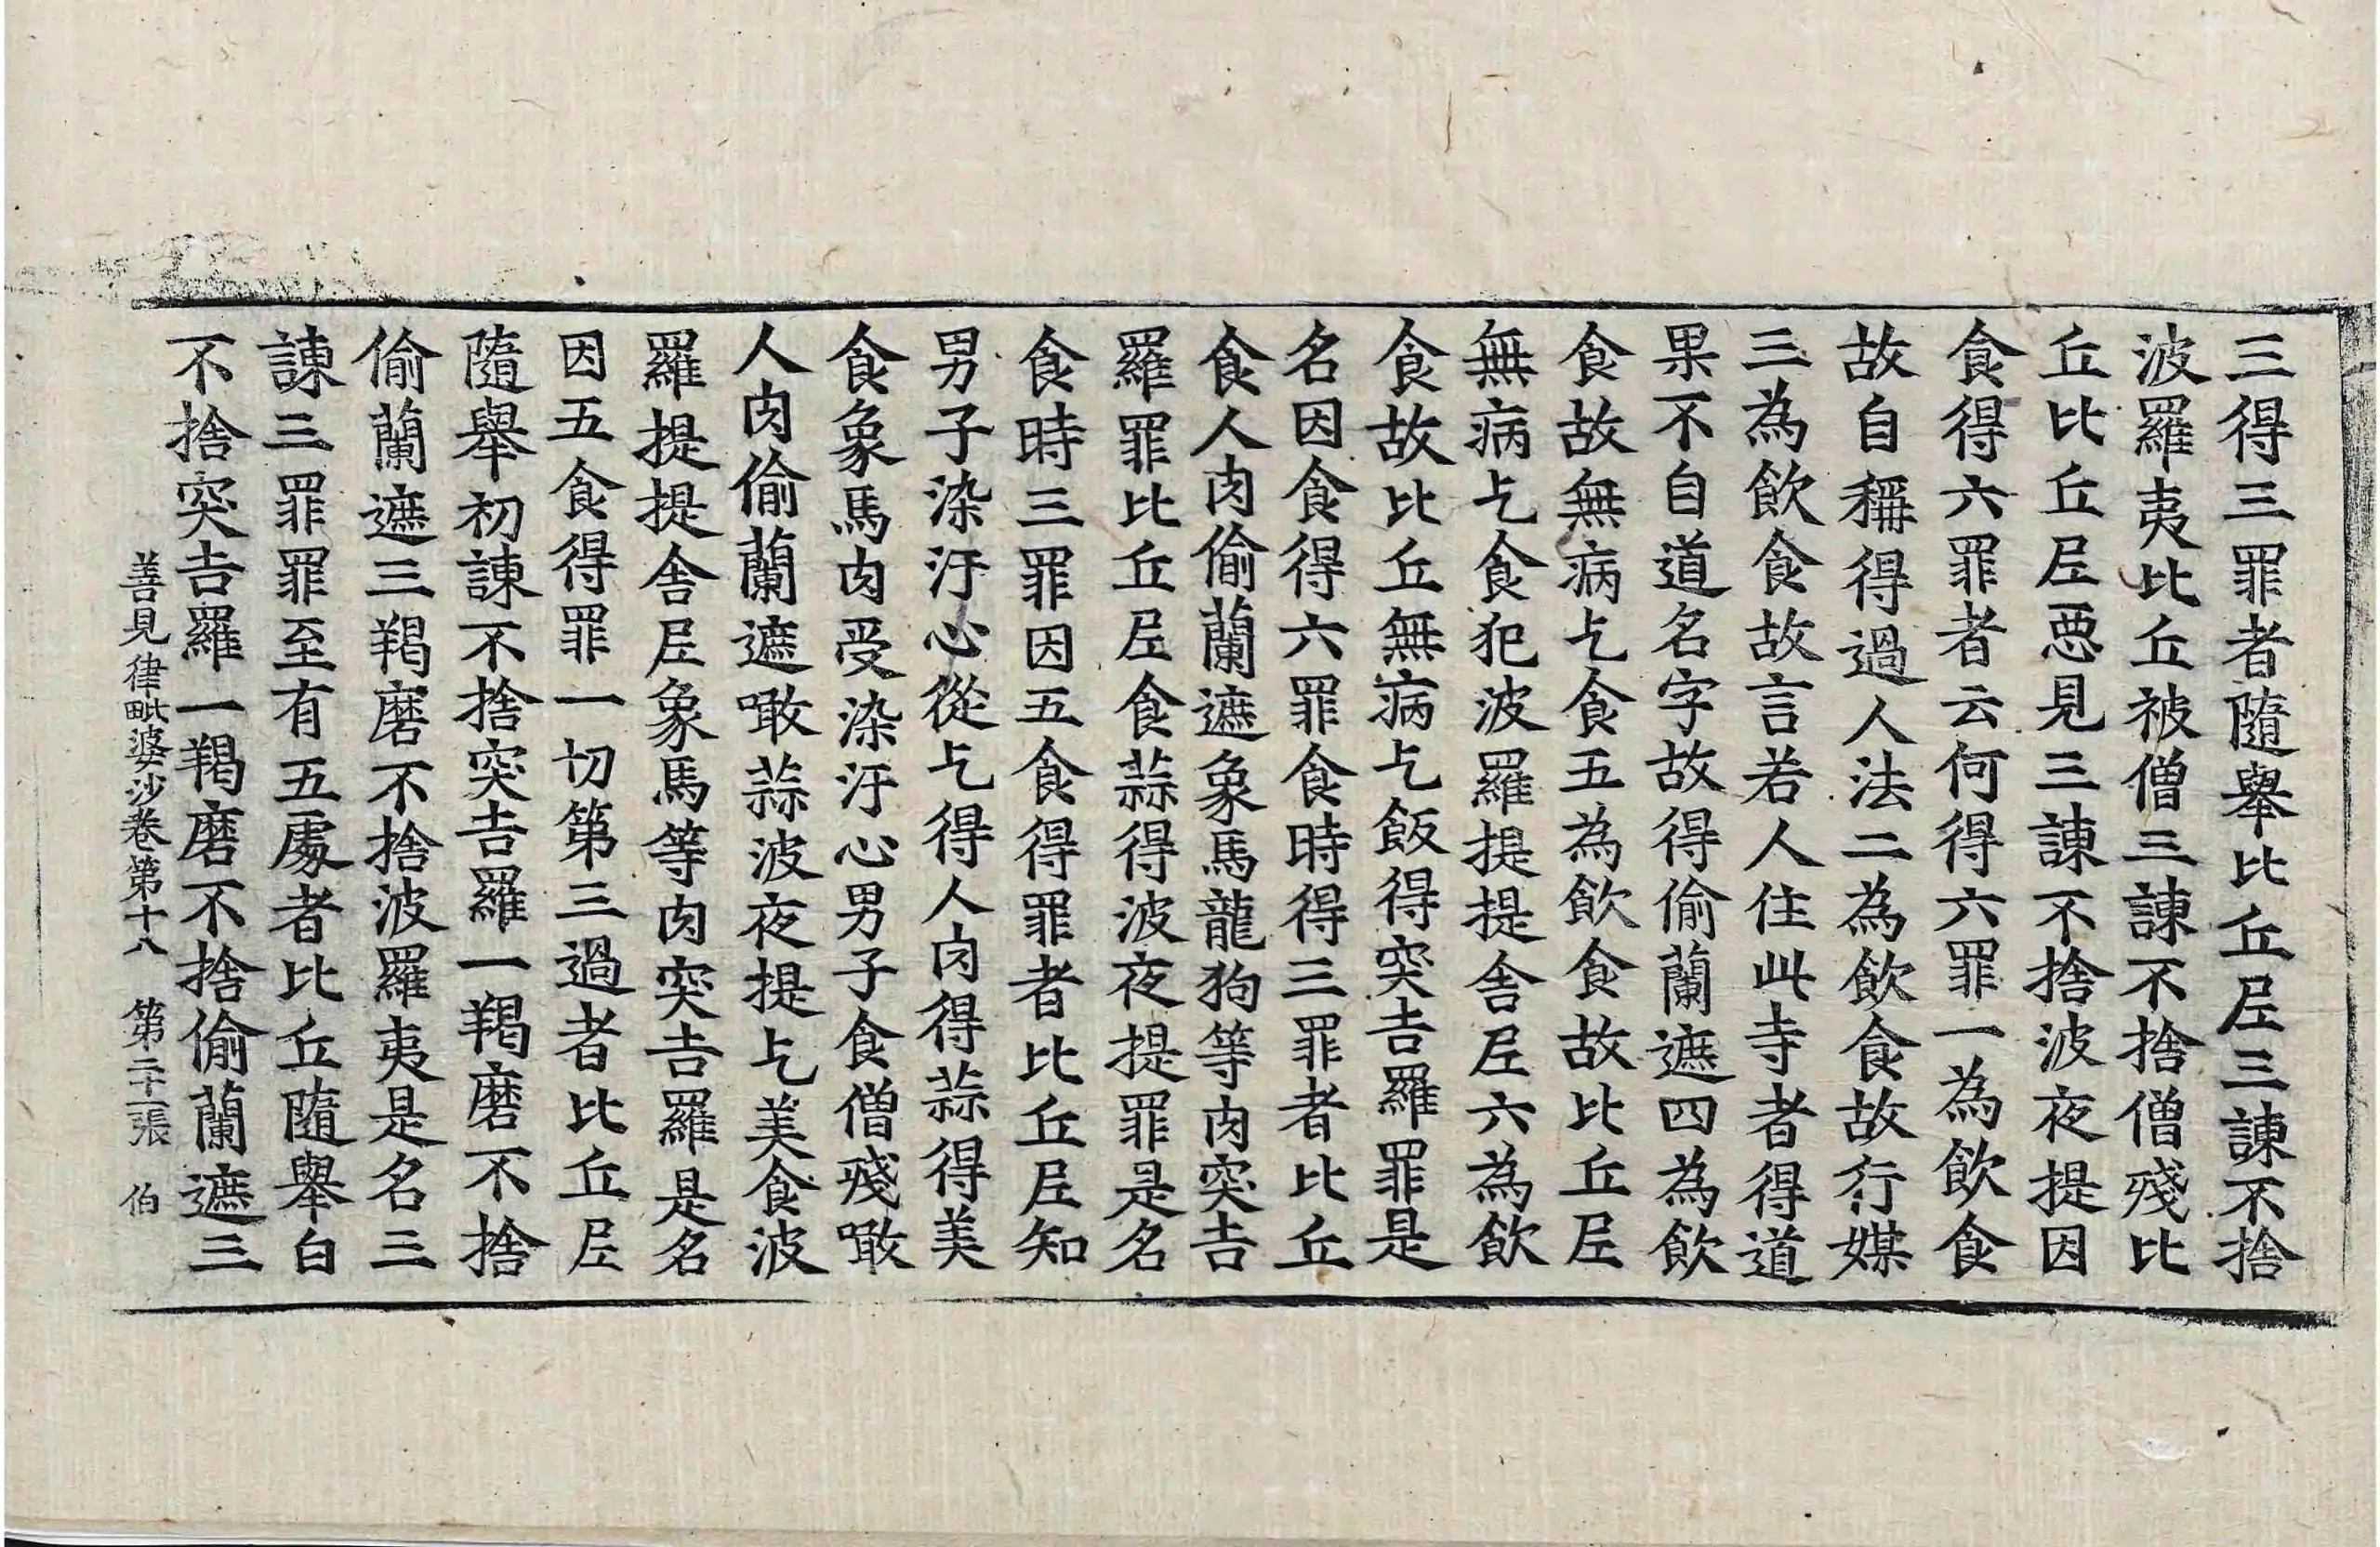 三得三罪者隨舉比丘𡰱三諫不捨
波羅夷比丘被僧三諫不捨僧殘比
丘比丘𡰱惡見三諫不捨波夜提因
食得六罪者云何得六罪一為飲食
故自稱得過人法二為飲食故行媒
三為飲食故言若人住此寺者得道
果不自道名字故得偷蘭遮四為飲
食故無病乞食五為飲食故比丘𡰱
無病乞食犯波羅提提舍𡰱六為飲
食故比丘無病乞飯得突吉羅罪是
名因食得六罪食時得三罪者比丘
食人肉偷蘭遮象馬龍狗等肉突吉
羅罪比丘𡰱食蒜得波夜提罪是名
食時三罪因五食得罪者比丘𡰱知
男子染汙心從乞得人肉得蒜得美
食象馬肉受染汙心男子食僧殘噉
人肉偷蘭遮噉蒜波夜提乞美食波
羅提提舍𡰱象馬等肉突吉羅是名
因五食得罪一切第三過者比丘𡰱
隨舉初諫不捨突吉羅一羯磨不捨
偷蘭遮三羯磨不捨波羅夷是名三
諫三罪罪至有五處者比丘隨舉白
不捨突吉羅一羯磨不捨偷蘭遮三
善見律毗婆沙卷第十八 第二十一張 伯